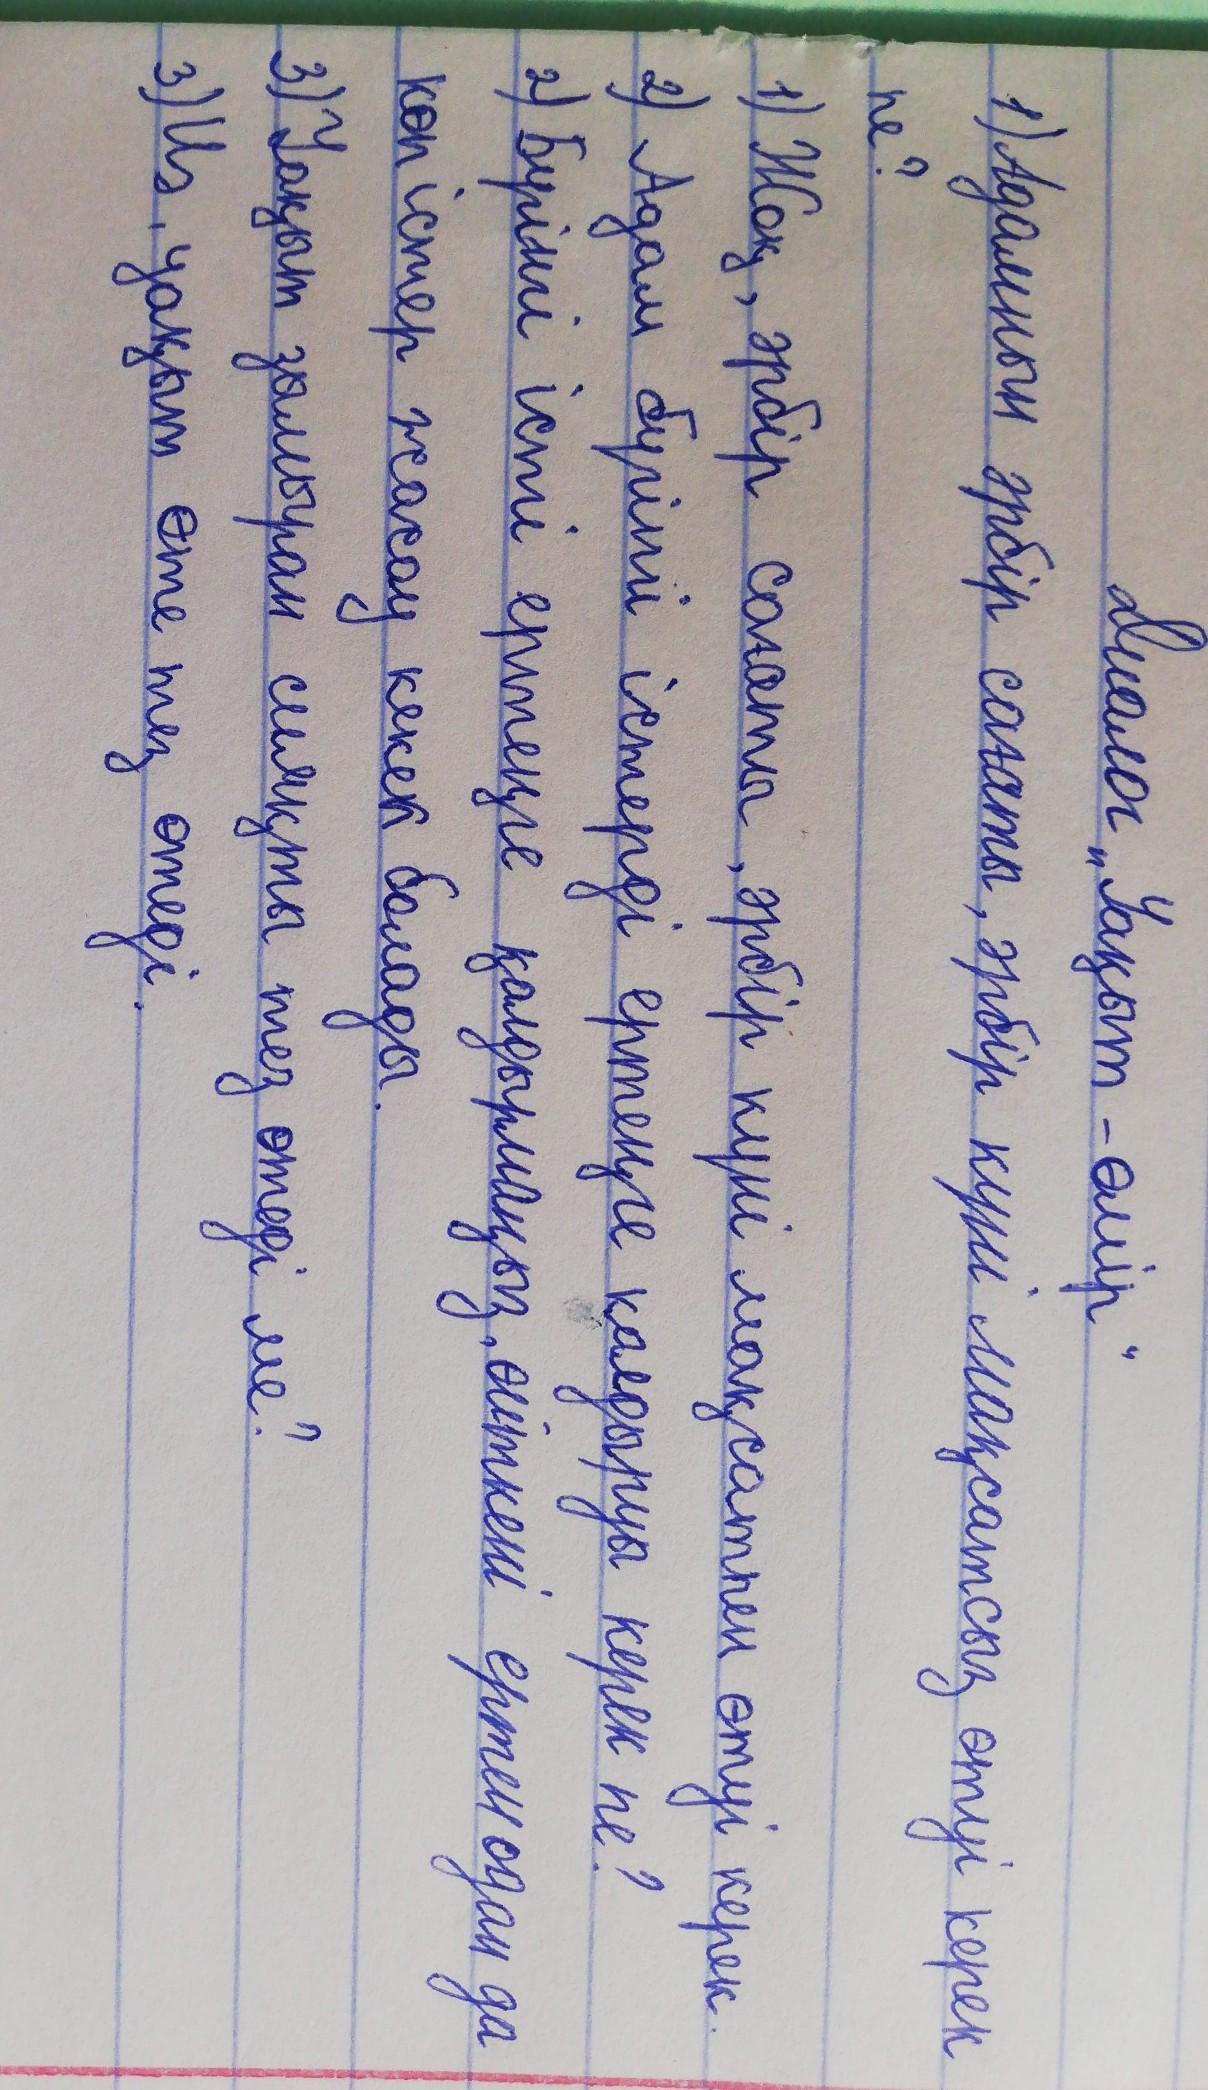 Диалог „Уақыт - өмір"
1) Адамның әрбір сағаты, әрбір күні мақсатсыз өтуі керек
пе?
1) Жоқ, әрбір сағаты, әрбір күні мақсатпен өтуі керек.
2) Адам бүгінгі істерді ертеңге қалдыруы керек пе?
2) Бүгінгі істі ертеңге қалдырмаңыз, өйткені ертең одан да
көп істер жасау кекек болады.
3) Уақыт зымыран сияқты тез өтеді ме?
3) Иә, уақыт өте тез өтеді.